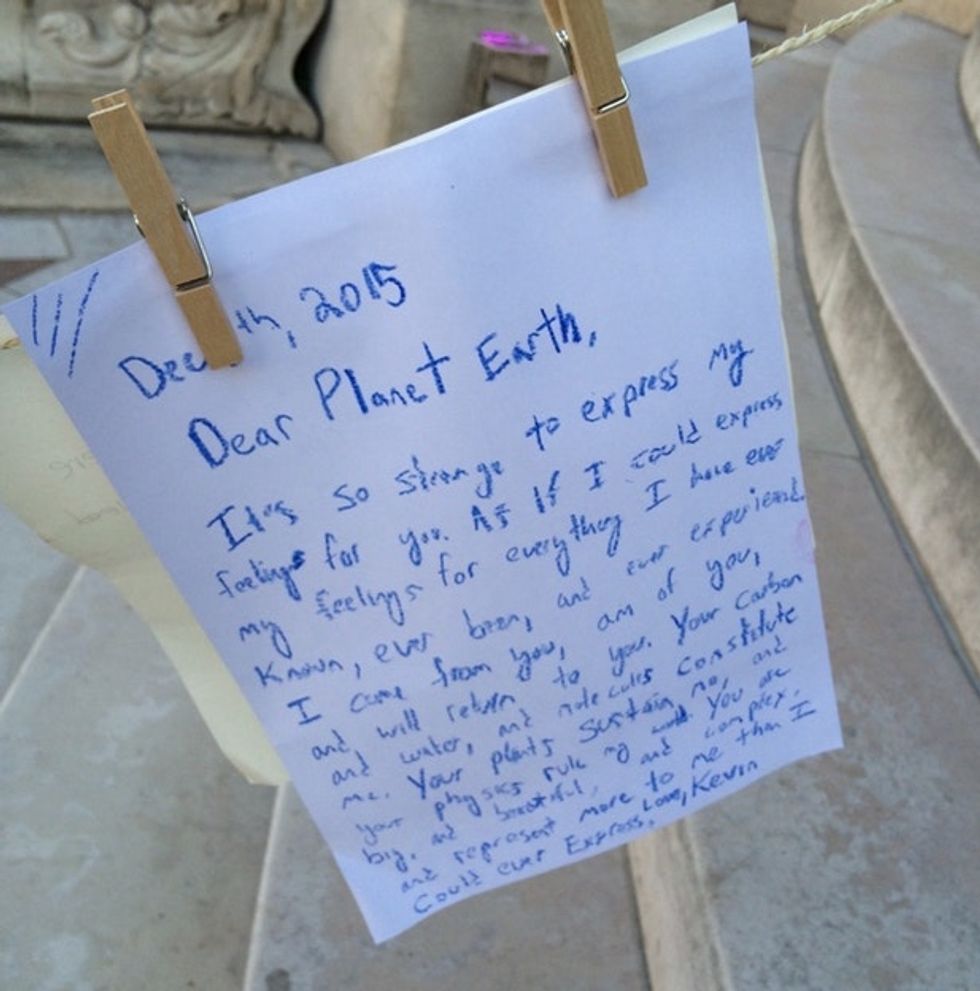 Dec th, 2015
Dear Planet Earth,
It's so strange to express my
feelings for you. As if I could express
my feelings for everything I have ever
known, ever been, and ever experienced.
I came from you, am of you,
and will return to you. Your carbon
and water, and molecules constitute
me. Your plants sustain me, and
your physics rule my world. You are
big, and beautiful, and complex,
and represent more to me than I
could ever Express. Love, Kevin